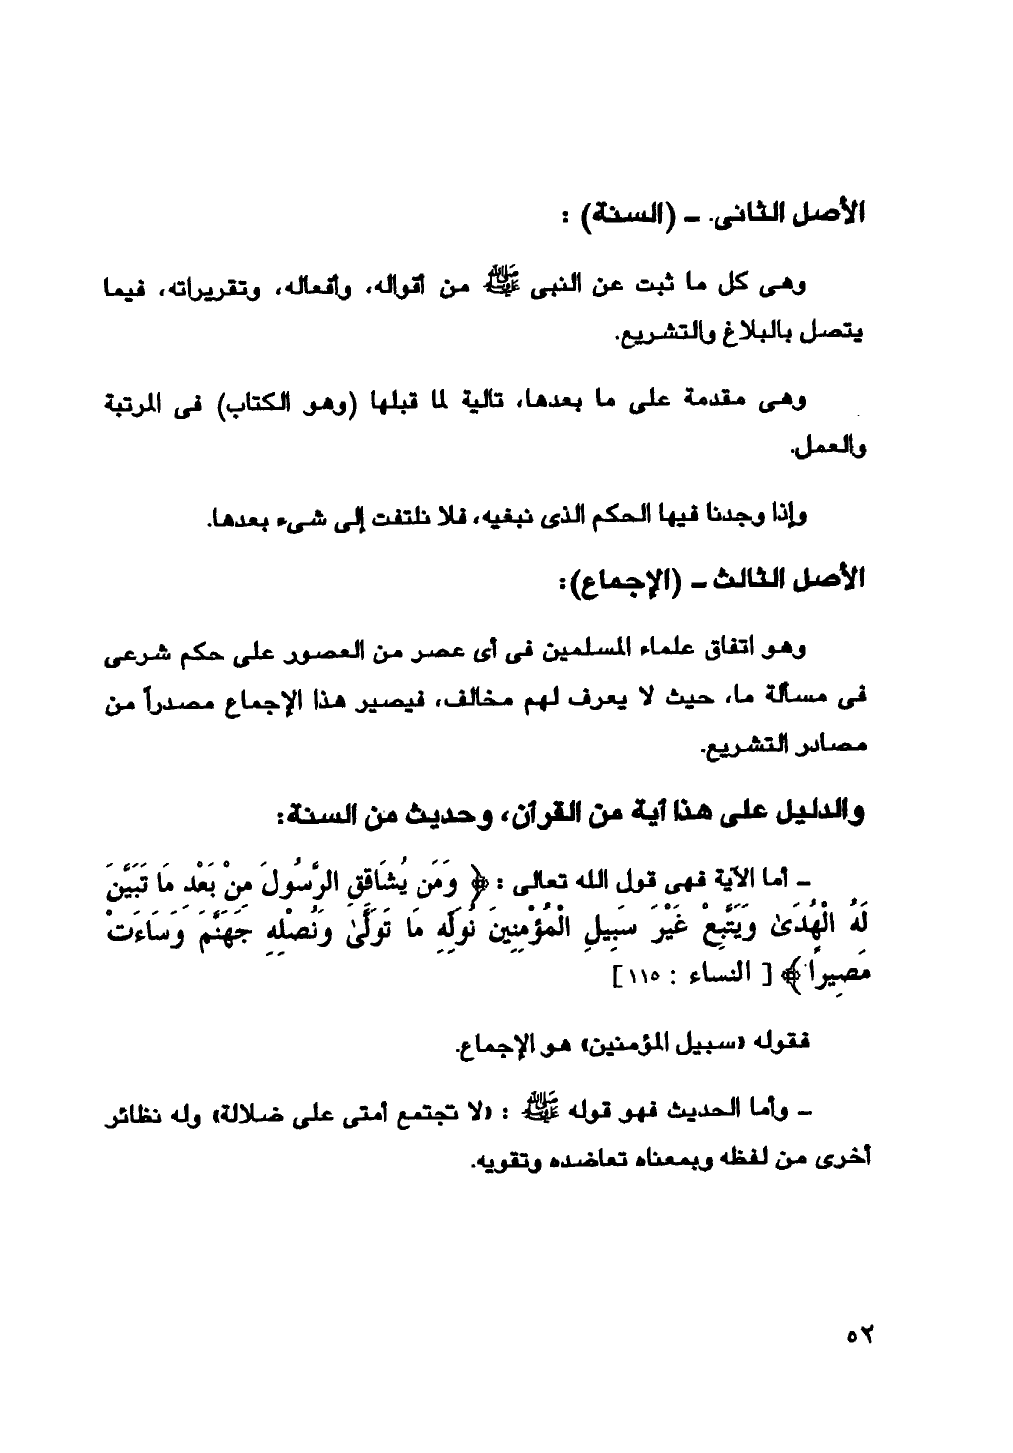 الأصل الثانى. ـ (السنة) :
وهى كل ما ثبت عن النبى ﷺ من أقواله، وأفعاله، وتقريراته، فيما
يتصل بالبلاغ والتشريع.
وهى مقدمة على ما بعدها، تالية لما قبلها (وهو الكتاب) فى المرتبة
والعمل.
وإذا وجدنا فيها الحكم الذى نبغيه، فلا نلتفت إلى شىء بعدها.
الأصل الثالث ـ (الإجماع):
وهو اتفاق علماء المسلمين فى أى عصر من العصور على حكم شرعى
فى مسألة ما، حيث لا يعرف لهم مخالف، فيصير هذا الإجماع مصدراً من
مصادر التشريع.
والدليل على هذا آية من القرآن، وحديث من السنة:
ـ أما الآية فهى قول الله تعالى : ﴿ وَمَن يُشَاقِقِ الرَّسُولَ مِنْ بَعْدِ مَا تَبَيَّنَ
لَهُ الْهُدَىٰ وَيَتَّبِعْ غَيْرَ سَبِيلِ الْمُؤْمِنِينَ نُوَلِّهِ مَا تَوَلَّىٰ وَنُصْلِهِ جَهَنَّمَ وَسَاءَتْ
مَصِيرًا ﴾ [ النساء : ١١٥]
فقوله «سبيل المؤمنين» هو الإجماع.
ـ وأما الحديث فهو قوله ﷺ : «لا تجتمع أمتى على ضلالة» وله نظائر
أخرى من لفظه وبمعناه تعاضده وتقويه.
٥٢